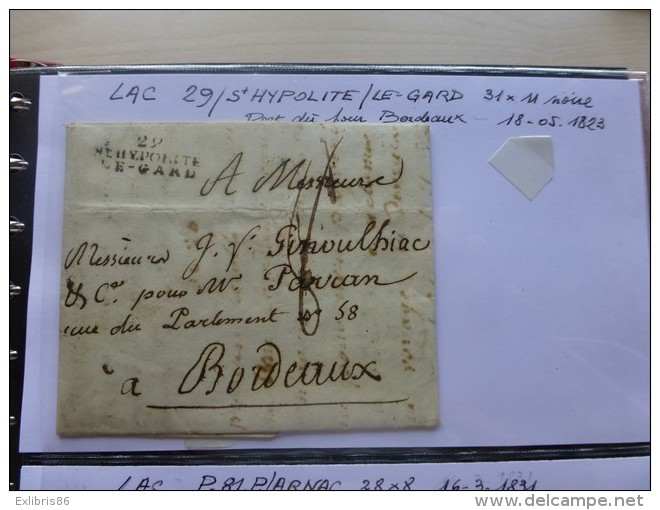 LAC 29/St HYPOLITE/LE-GARD 31x11 noire
Port dû pour Bordeaux - 18-05.1823
29
St HYPOLITE
LE-GARD
A Messieurs
Messieurs J. V. Ginoulhiac
& Co. pour Mr. Parran
rue du Parlement No 58
à Bordeaux
LAC P.81.P/ARNAC 28x8 16-3-1831
Exlibris86
delcampe.net